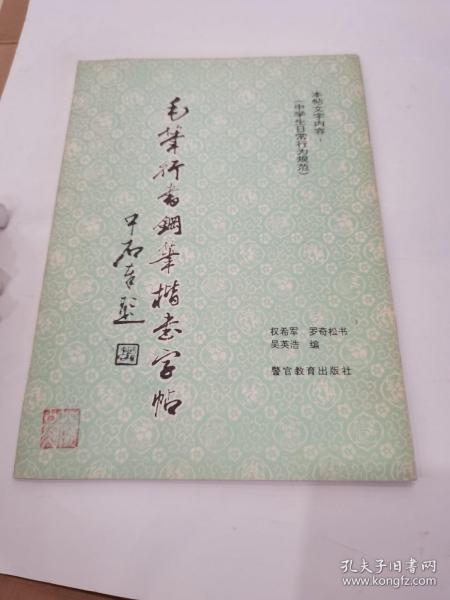 本帖文字内容：
（中学生日常行为规范）
毛筆行書鋼筆楷書字帖
中石書题
权希军 罗奇松书
吴英浩 编
警官教育出版社
孔夫子旧书网
www.kongfz.com